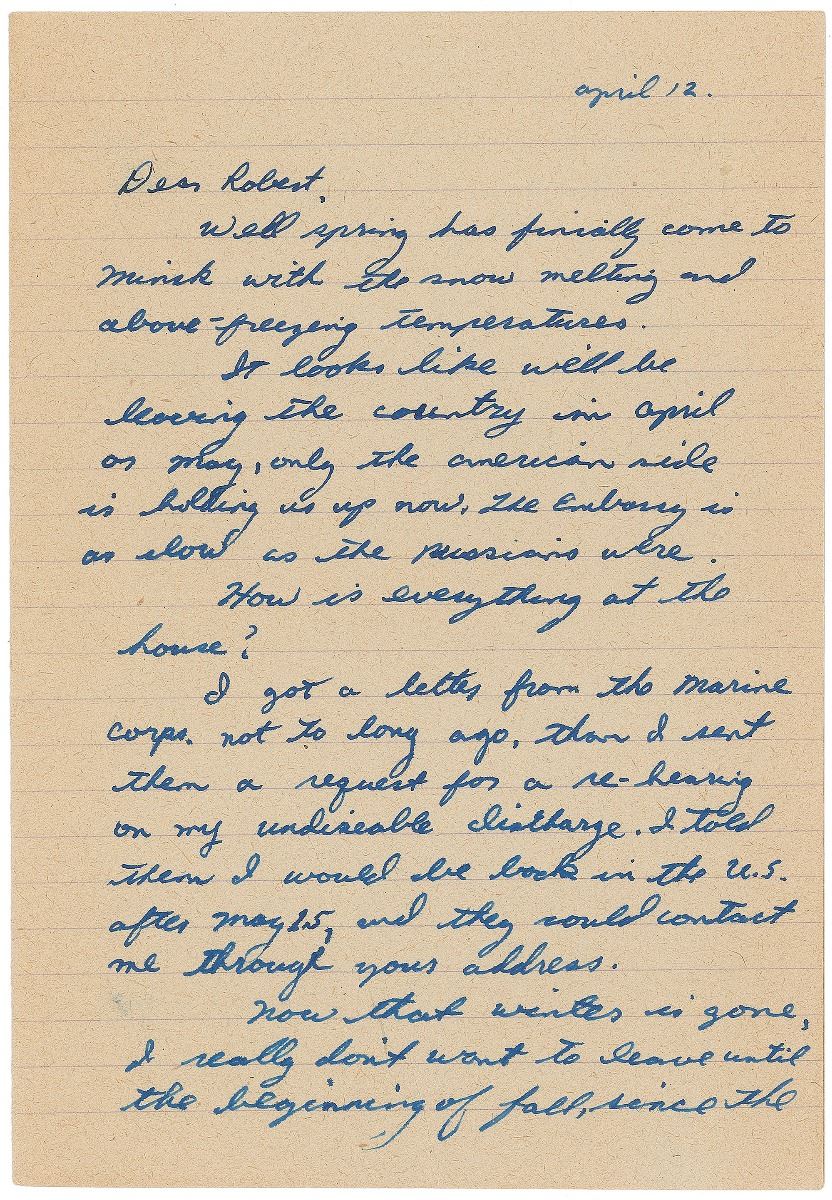 april 12.
Dear Robert,
Well spring has finially come to
Minsk with the snow melting and
above-freezing temperatures.
It looks like we'll be
leaving the country in april
or may, only the american side
is holding us up now. The Embassy is
as slow as the Russians were.
How is everything at the
house?
I got a letter from the Marine
Corps. not to long ago, than I sent
them a request for a re-hearing
on my undiseable discharge. I told
them I would be back in the U.S.
after May 15, and they could contact
me through your address.
Now that winter is gone,
I really don't want to leave until
the beginning of fall, since the